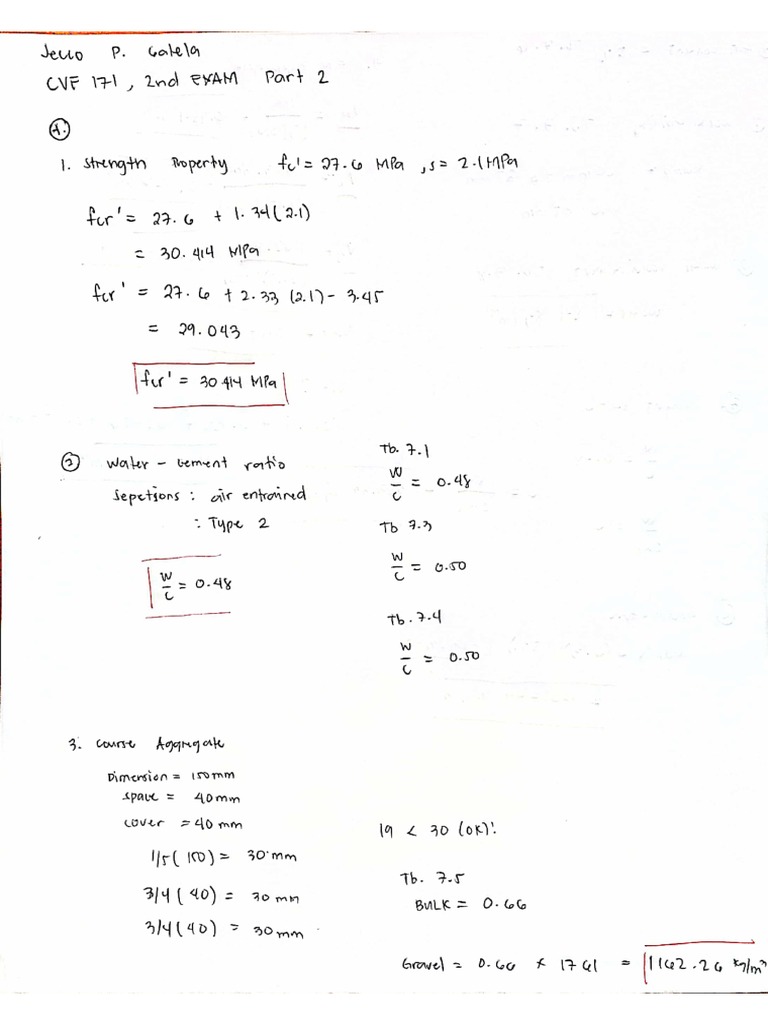 Jerro P. Catela
CVF 171, 2nd EXAM Part 2
1.
1. Strength Property fc' = 27.6 MPa, s = 2.1 MPa
fcr' = 27.6 + 1.34(2.1)
= 30.414 MPa
fcr' = 27.6 + 2.33 (2.1) - 3.45
= 29.043
fcr' = 30.414 MPa
② Water - cement ratio
Sepctions : air entrained
: Type 2
W/C = 0.48
Tb. 7.1
W/C = 0.48
Tb 7.3
W/C = 0.50
Tb. 7.4
W/C = 0.50
3. Course Aggregate
Dimension = 150mm
space = 40mm
cover = 40 mm
1/5 (150) = 30 mm
3/4 (40) = 30 mm
3/4 (40) = 30 mm
19 < 30 (OK)!
Tb. 7.5
BULK = 0.66
Gravel = 0.66 x 1761 = 1162.26 kg/m³